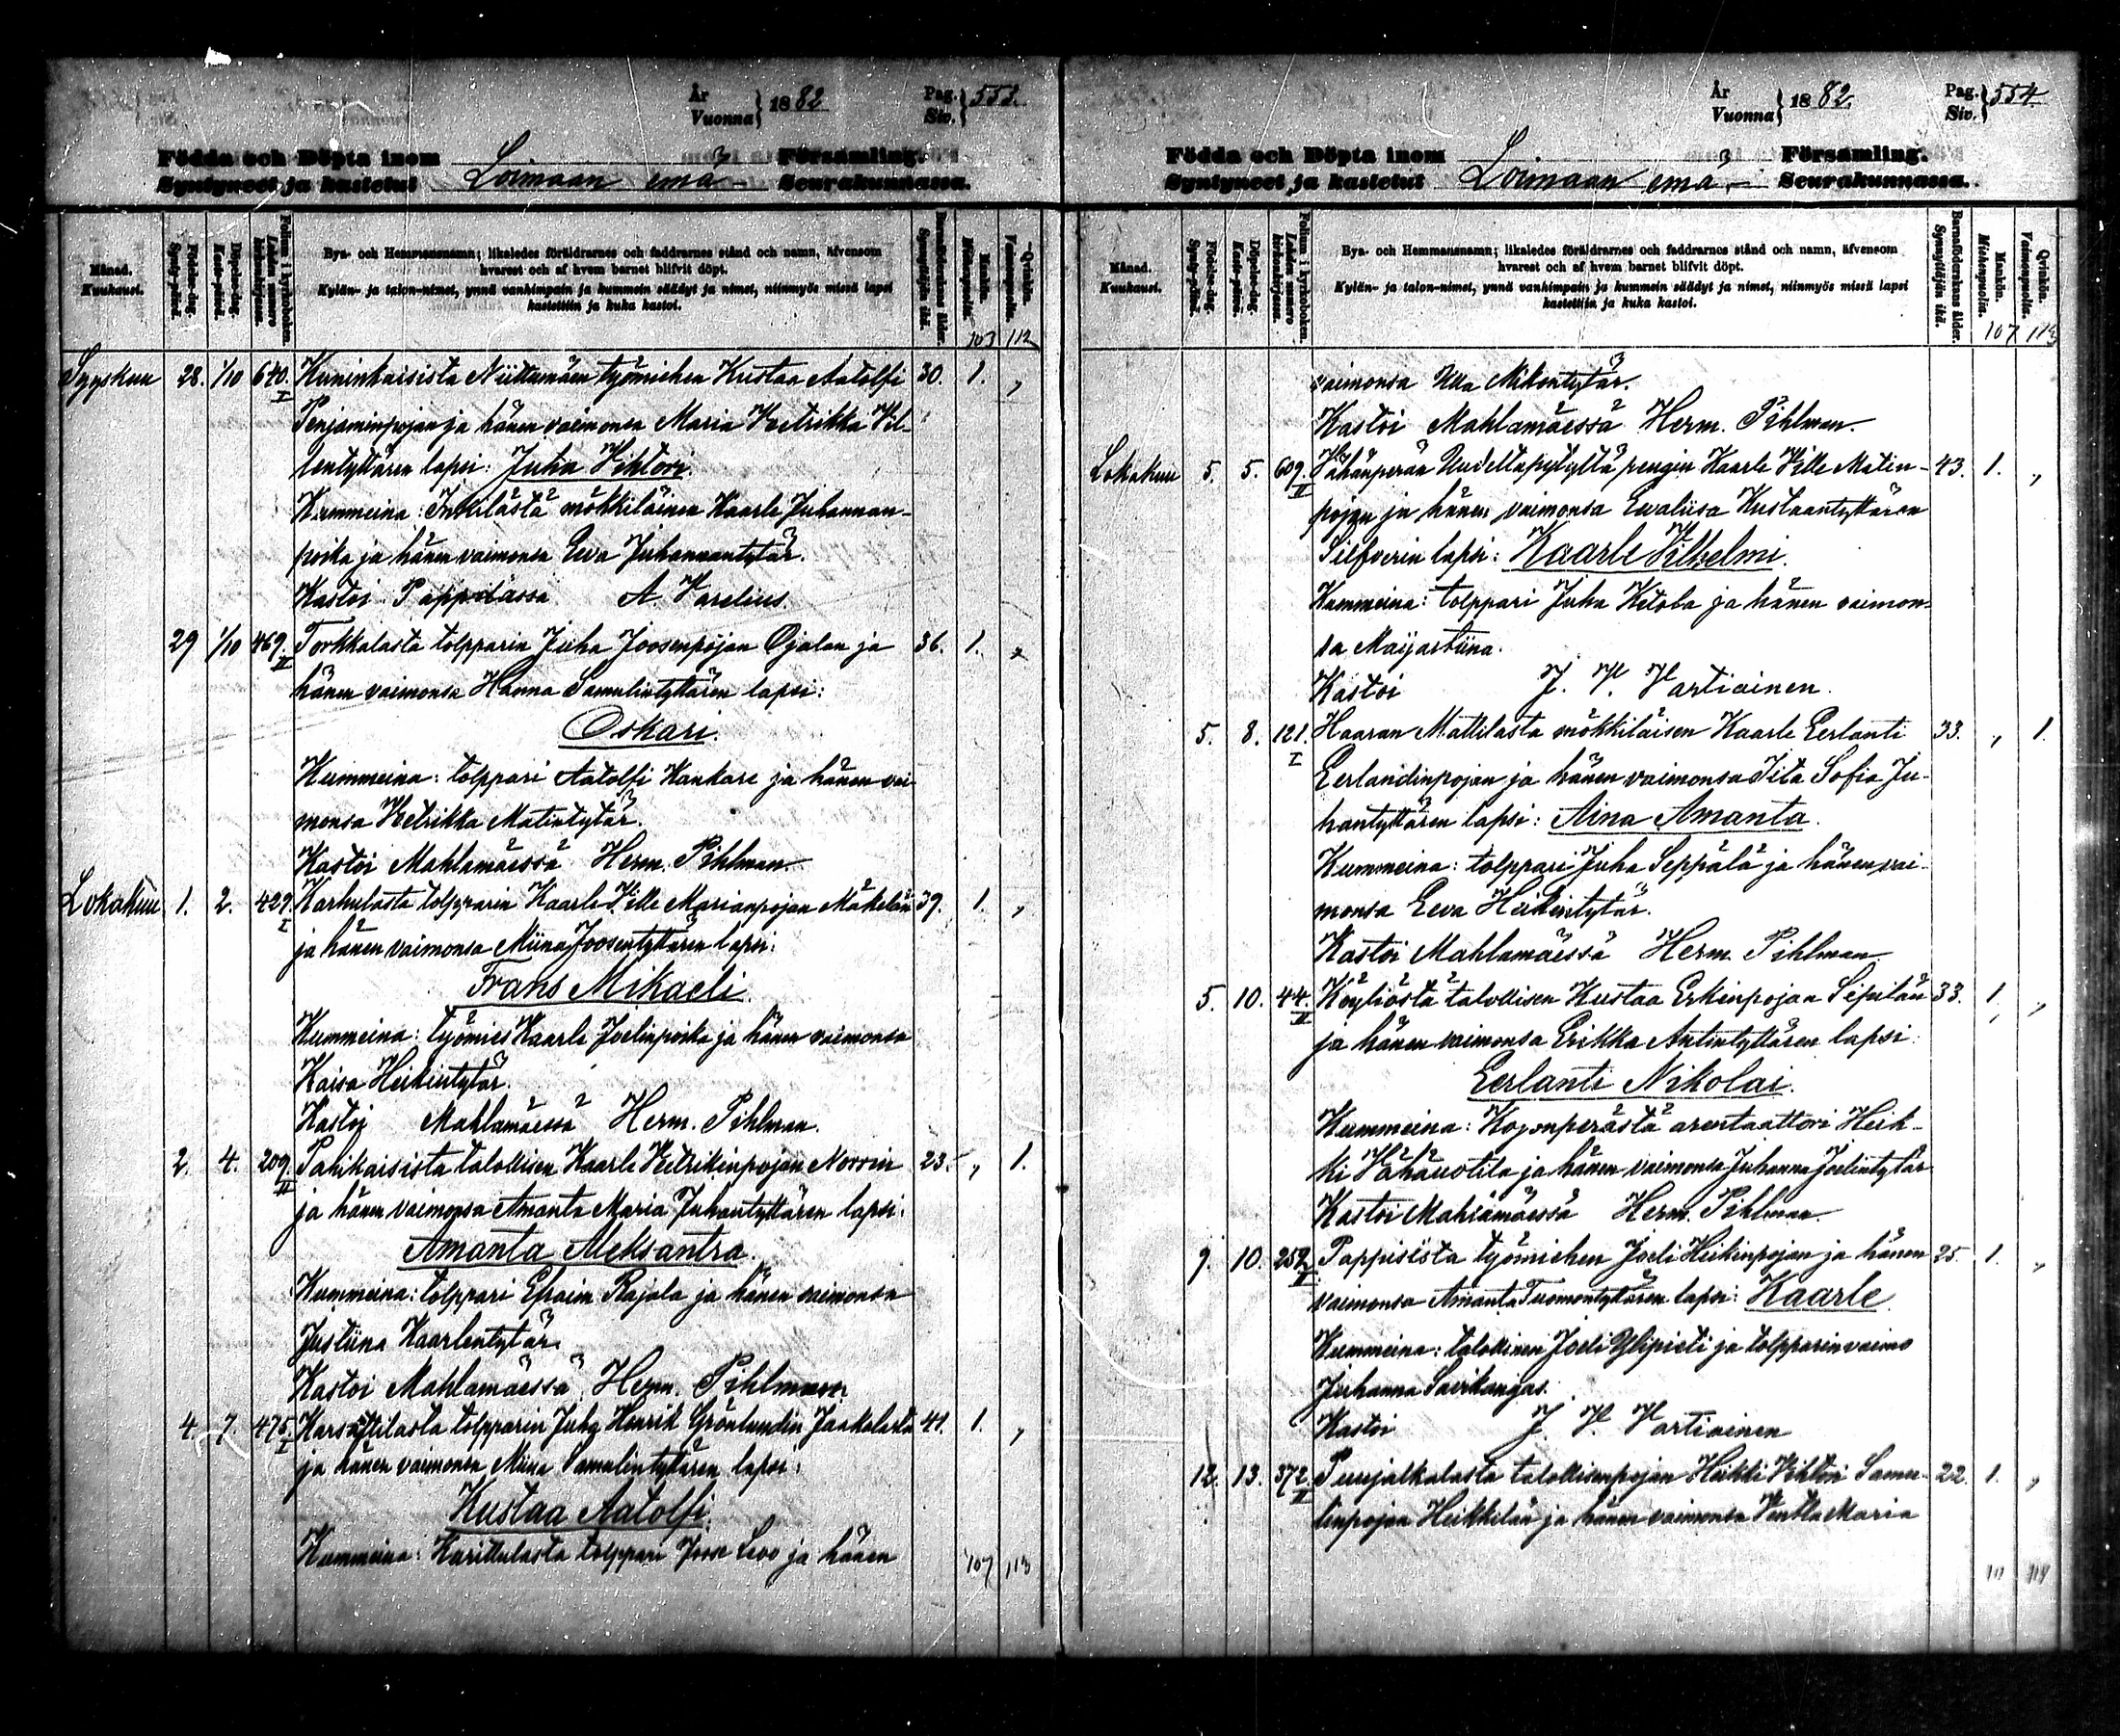 År
Vuonna } 1882
Pag.
Siv. } 553.
Födda och Döpta inom Församling.
Syntyneet ja kastetut Loimaan emä- Seurakunnassa.
Månad.
Kuukausi.
Födelse-dag.
Synty-päivä.
Döpelse-dag.
Kaste-päivä.
Folium i kyrkoboken.
Lehden numero kirkonkirjassa.
Bya- och Hemmansnamn; likaledes föräldrarnes och faddrarnes stånd och namn, äfvensom
hvarest och af hvem barnet blifvit döpt.
Kylän- ja talon-nimet, ynnä vanhimpain ja kummein säädyt ja nimet, niinmyös missä lapsi
kastettiin ja kuka kastoi.
Barnaföderskans ålder.
Synnyttäjän ikä.
Mankön.
Miehenpuolia.
Qvinkön.
Vaimonpuolia.
103 112
Syyskuu 28. 1/10 640. I Kuninkaisista Niittumäen työmiehen Kustaa Aatolfi 30. 1. „
Penjaminpojan ja hänen vaimonsa Maria Vretrikka Vil-
lentyttären lapsi: Juha Vihtori.
Kummeina: Inkilästä mökkiläinen Kaarle Juhannan-
poika ja hänen vaimonsa Eeva Juhannantytär.
Kastoi Pappilassa A. Varelius.
29 1/10 469. II Torkkalasta tolpparin Juha Joosenpojan Ojalan ja 36. 1. „
hänen vaimonsa Hanna Samulintyttären lapsi:
Oskari.
Kummeina: tolppari Aatolfi Kankare ja hänen vai
monsa Vretrikka Matintytär.
Kastoi Mahlamäessä Herm. Pihlman.
Lokakuu 1. 2. 429. I Karhulasta tolpparin Kaarle Ville Marianpojan Mäkelän 39. 1. „
ja hänen vaimonsa Miina Joosentyttären lapsi:
Frans Mikaeli.
Kummeina: työmies Kaarle Joelinpoika ja hänen vaimonsa
Kaisa Heikintytär.
Kastoi Mahlamäessä Herm. Pihlman.
2. 4. 209. II talollisen Kaarle Vretrikinpojan Norrin 23. „ 1.
ja hänen vaimonsa Amanta Maria Juhantyttären lapsi:
Amanta Aleksantra.
Kummeina: tolppari Efraim Rajala ja hänen vaimonsa
Justiina Kaarlentytär.
Kastoi Mahlamäessä Herm. Pihlman.
4. 7. 475. I Karsattilasta tolpparin Juha Henrik Grönlundin Jaakolasta 41. 1. „
ja hänen vaimonsa Miina Samulintyttären lapsi:
Kustaa Aatolfi.
Kummeina: Kurittulasta tolppari Joose Levo ja hänen
107 113
År
Vuonna } 1882.
Pag.
Siv. } 554
Födda och Döpta inom Församling.
Syntyneet ja kastetut Loimaan emä- Seurakunnassa.
Månad.
Kuukausi.
Födelse-dag.
Synty-päivä.
Döpelse-dag.
Kaste-päivä.
Folium i kyrkoboken.
Lehden numero kirkonkirjassa.
Bya- och Hemmansnamn; likaledes föräldrarnes och faddrarnes stånd och namn, äfvensom
hvarest och af hvem barnet blifvit döpt.
Kylän- ja talon-nimet, ynnä vanhimpain ja kummein säädyt ja nimet, niinmyös missä lapsi
kastettiin ja kuka kastoi.
Barnaföderskans ålder.
Synnyttäjän ikä.
Mankön.
Miehenpuolia.
Qvinkön.
Vaimonpuolia.
107 113
vaimonsa Ulla Mikontytär.
Kastoi Mahlamäessä Herm. Pihlman.
Lokakuu 5. 5. 609. II Vähänperän rengin Kaarle Ville Matin- 43. 1. „
pojan ja hänen vaimonsa Evaliisa Kustaantyttären
Silfverin lapsi: Kaarle Vilhelmi.
Kummeina: tolppari Juha Ketola ja hänen vaimon-
sa Maijastiina.
Kastoi J. V. Vartiainen.
5. 8. 121. I Haaran Mattilasta mökkiläisen Kaarle Eerlanti 33. „ 1.
Eerlandinpojan ja hänen vaimonsa Iita Sofia Ju-
hantyttären lapsi: Aina Amanta.
Kummeina: tolppari Juha Seppälä ja hänen vai-
monsa Eeva Heikintytär.
Kastoi Mahlamäessä Herm. Pihlman
5. 10. 44. II Köyliöstä talollisen Kustaa Erkinpojan Sipilän 33. 1. „
ja hänen vaimonsa Erikka Antintyttären lapsi:
Eerlanti Nikolai.
Kummeina: Kojonperästä arentaattori Heik-
ki Vähäuotila ja hänen vaimonsa Juhanna Joelintytär
Kastoi Mahlamäessä Herm. Pihlman.
9. 10. 259. II Pappisista työmiehen Joeli Heikinpojan ja hänen 25. 1. „
vaimonsa Amanta Tuomontyttären lapsi: Kaarle
Kummeina: talollinen Joeli Ylipieti ja tolpparinvaimo
Juhanna Savikangas.
Kastoi J. V. Vartiainen
12. 13. 372. II Puujalkalasta talollisenpojan Heikki Vihtori Samu- 22. 1. „
linpojan Heikkilän ja hänen vaimonsa Maria
111 114